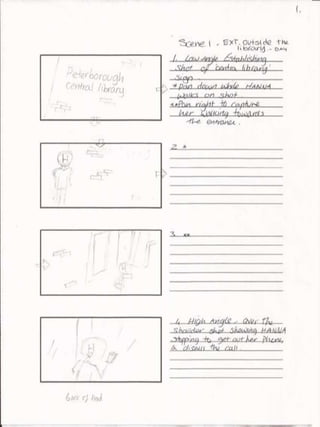 1.
Scene 1 - EXT. Outside the
library - DAY
1. Low Angle Establishing
Shot of central library
Sign.
* pan down while HANNA
walks on shot.
** Pan right to capture
her walking towards
the entrance.
Peterborough
central library
2. *
3. **
4. High Angle - Over The
Shoulder shot showing HANNA
Stopping to get out her Phone
& the call.
Back of head